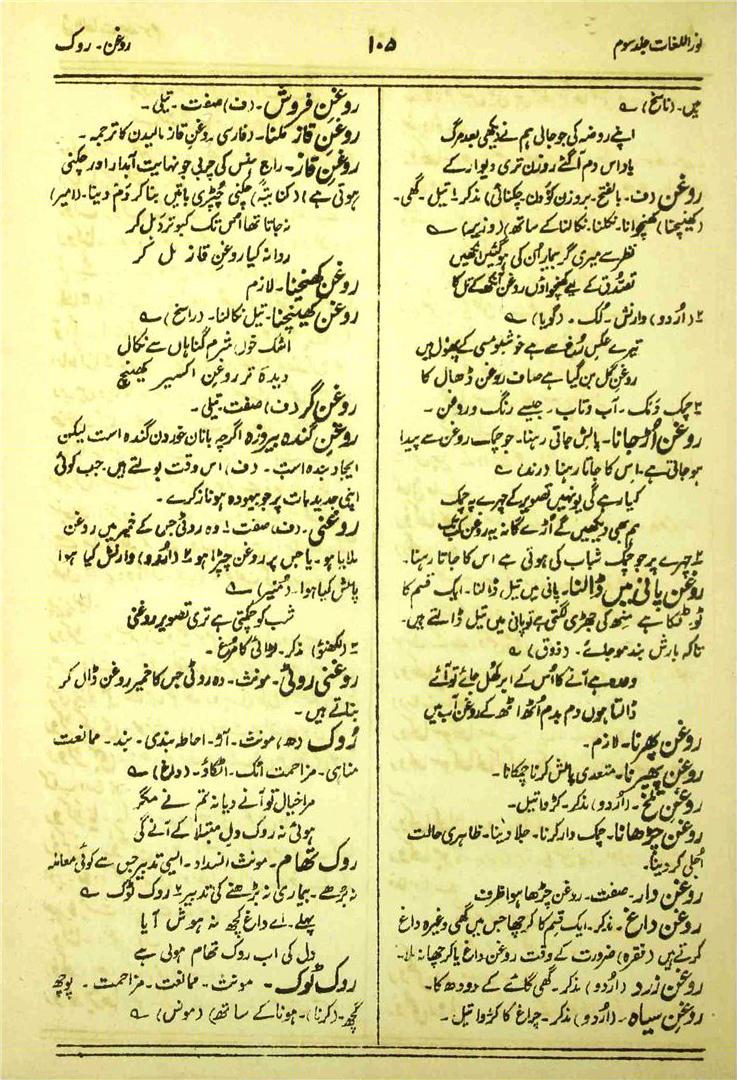 نور اللغات جلد سوم
۱۰۵
روغن ۔ روک
میں۔ (ناسخ) ؎
اپنے روضہ کی جو جالی ہم نے دیکھی بعد مرگ
یاد اس دم آگئے روزن تری دیوار کے
روغن (ف۔ بالفتح۔ بروزن کودن۔ چکنائی) مذکر۔ ۱ تیل۔ گھی۔
(کھینچنا) کھنچوانا۔ نکلنا۔ نکالنا کے ساتھ) (وزیر) ؎
نظرے میری گر بیمار اُن کی ہوگئیں آنکھیں
تصدّق کے لیے کھنچواؤں روغن آنکھ کے تل کا
۲ (اُردو) وارنش۔ لک۔ (گویا) ؎
تیرے عکسِ رُخ سے ہے خوشبو مسی کے پھول میں
روغنِ گل بن گیا ہے صاف روغن ڈھال کا
۳ چمک دَمک۔ آب و تاب۔ جیسے رنگ و روغن۔
روغن اُڑ جانا۔ پالش جاتی رہنا۔ جو چمک روغن سے پیدا
ہوجاتی ہے۔ اس کا جاتا رہنا (رند) ؎
کیا رہے گی یونہیں تصویر کے چہرے پہ چمک
ہم بھی دیکھیں گے اُڑے گا نہ یہ روغن کب تک
۲ چہرے پر جو چمک شباب کی ہوتی ہے اس کا جاتا رہنا۔
روغن پانی میں ڈالنا۔ پانی میں تیل ڈالنا۔ ایک قسم کا
ٹوٹکا ہے منھ کی جھڑی لگتی ہے تو پانی میں تیل ڈالتے ہیں۔
تاکہ بارش بند ہوجائے۔ (ذوق) ؎
وعدہ ہے آنے کا اُس کے ابر کھل جائے تو آئے
ڈالتا ہوں دم بدم اُٹھ اٹھ کے روغن آب میں
روغن پھرنا۔ لازم۔
روغن پھیرنا۔ متعدی پالش کرنا چمکانا۔
روغنِ تلخ۔ (اُردو) مذکر۔ کڑوا تیل۔
روغن چڑھانا۔ چمک دار کرنا۔ جلا دینا۔ ظاہری حالت
اُجلی کر دینا۔
روغن دار۔ صفت۔ روغن چڑھا ہوا ظرف
روغن داغ۔ مذکر۔ ایک قسم کا کرچھا جس میں گھی وغیرہ داغ
کرتے ہیں (فقرہ) ضرورت کے وقت روغن داغ یا کرچھا نہ ملا۔
روغنِ زرد (اُردو) مذکر۔ گھی گائے کے دودھ کا۔
روغنِ سیاہ۔ (اُردو) مذکر۔ چراغ کا کڑوا تیل۔
روغن فروش۔ (ف) صفت۔ تیلی۔
روغنِ قاز ملنا۔ (فارسی روغن قاز مالیدن کا ترجمہ۔
روغنِ قاز۔ راج ہنس کی چربی جو نہایت آبدار اور چکنی
ہوتی ہے) (کنایتہً) چکنی چُپڑی باتیں بنا کر دَم دینا۔ (امیر)
نہ جاتا تھا اُس تک کبوتر دہل کر
روانہ کیا روغنِ قاز مل کر
روغن کھنچنا۔ لازم
روغن کھینچنا۔ تیل نکالنا۔ (راسخ) ؎
اشک خوں شرم گناہاں سے نکال
دیدۂ تر روغنِ اکسیر کھینچ
روغن گر (ف) صفت۔ تیلی۔
روغنِ گندہ بیروزہ اگرچہ بانان خوردن گندہ است لیکن
ایجاد بندہ است۔ (ف) اس وقت بولتے ہیں۔ جب کوئی
اپنی جدید بات پر جو بیہودہ ہو ناز کرے۔
روغنی۔ (ف) صفت ۱ وہ روٹی جس کے خمیر میں روغن
ملایا ہو۔ یا جس پر روغن چپڑا ہو ۲ (اُردو) وارنش کیا ہوا
پالش کیا ہوا۔ (مُنیر) ؎
شب کو چمکتی ہے تری تصویر روغنی
۳ (لکھنؤ) مذکر۔ لڑائی کا مرغ۔
روغنی روٹی۔ مونث۔ وہ روٹی جس کا خمیر روغن ڈال کر
بناتے ہیں۔
رُوک (ھ) مونث۔ آڑ۔ احاطہ بندی۔ بند۔ ممانعت
مناہی۔ مزاحمت اٹک۔ اٹکاؤ۔ (داغ) ؎
مرا خیال تو آنے دیا نہ تم نے مگر
ہوئی نہ روک دل مبتلا کے آنے کی
روک تھام۔ مونث انسداد۔ ایسی تدبیر جس سے کوئی معاملہ
نہ بڑھے۔ بیماری نہ بڑھنے کی تدبیر ۲ روک ٹوک ؎
پہلے۔ اے داغ کچھ نہ ہوش آیا
دل کی اب روک تھام ہوتی ہے
روک ٹوک۔ مونث۔ ممانعت۔ مزاحمت۔ پوچھ
گچھ۔ (کرنا)۔ ہونا کے ساتھ) (مونس) ؎